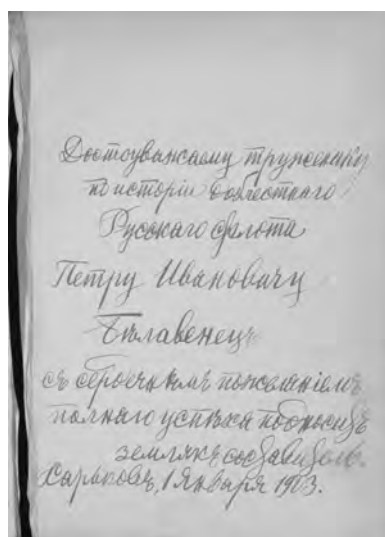 Достоуважаемому труженику
по исторіи доблестнаго
Русскаго флота
Петру Ивановичу
Бѣлавенецъ
съ сердечнымъ пожеланіемъ
полнаго успѣха подноситъ
землякъ составитель.
Харьковъ, 1 Января 1903.